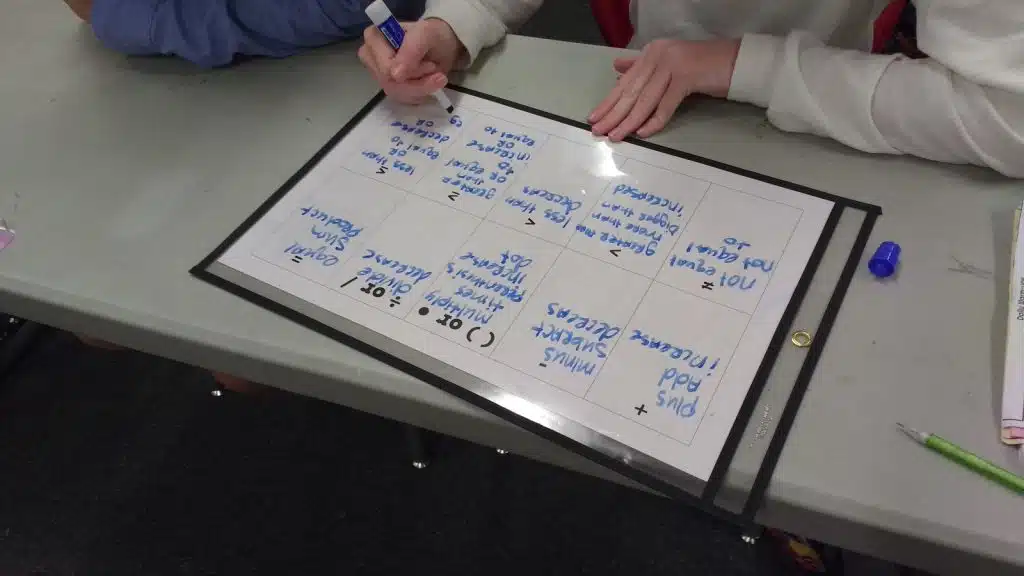 +
plus
Add
increase
-
minus
decreas
( ) or •
multiply
times
increase
dot
÷ or /
divide
decrease
=
equal
sum
Product
≠
not equal
not equal
to
>
greater than
more than
bigger than
increased
<
less than
Decreas
≥
greater
than
OR equal
to
OR
increase
equal to
≤
less than
OR
equal to
OR
decrease
eq